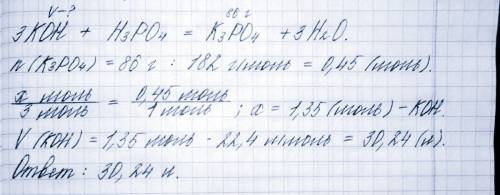 V-? 86 г
3KOH + H3PO4 = K3PO4 + 3H2O.
n(K3PO4) = 86 г : 182 г/моль = 0,45 (моль).
x моль / 3 моль = 0,45 моль / 1 моль ; x = 1,35 (моль) - KOH.
V(KOH) = 1,35 моль · 22,4 л/моль = 30,24 (л).
Ответ: 30,24 л.